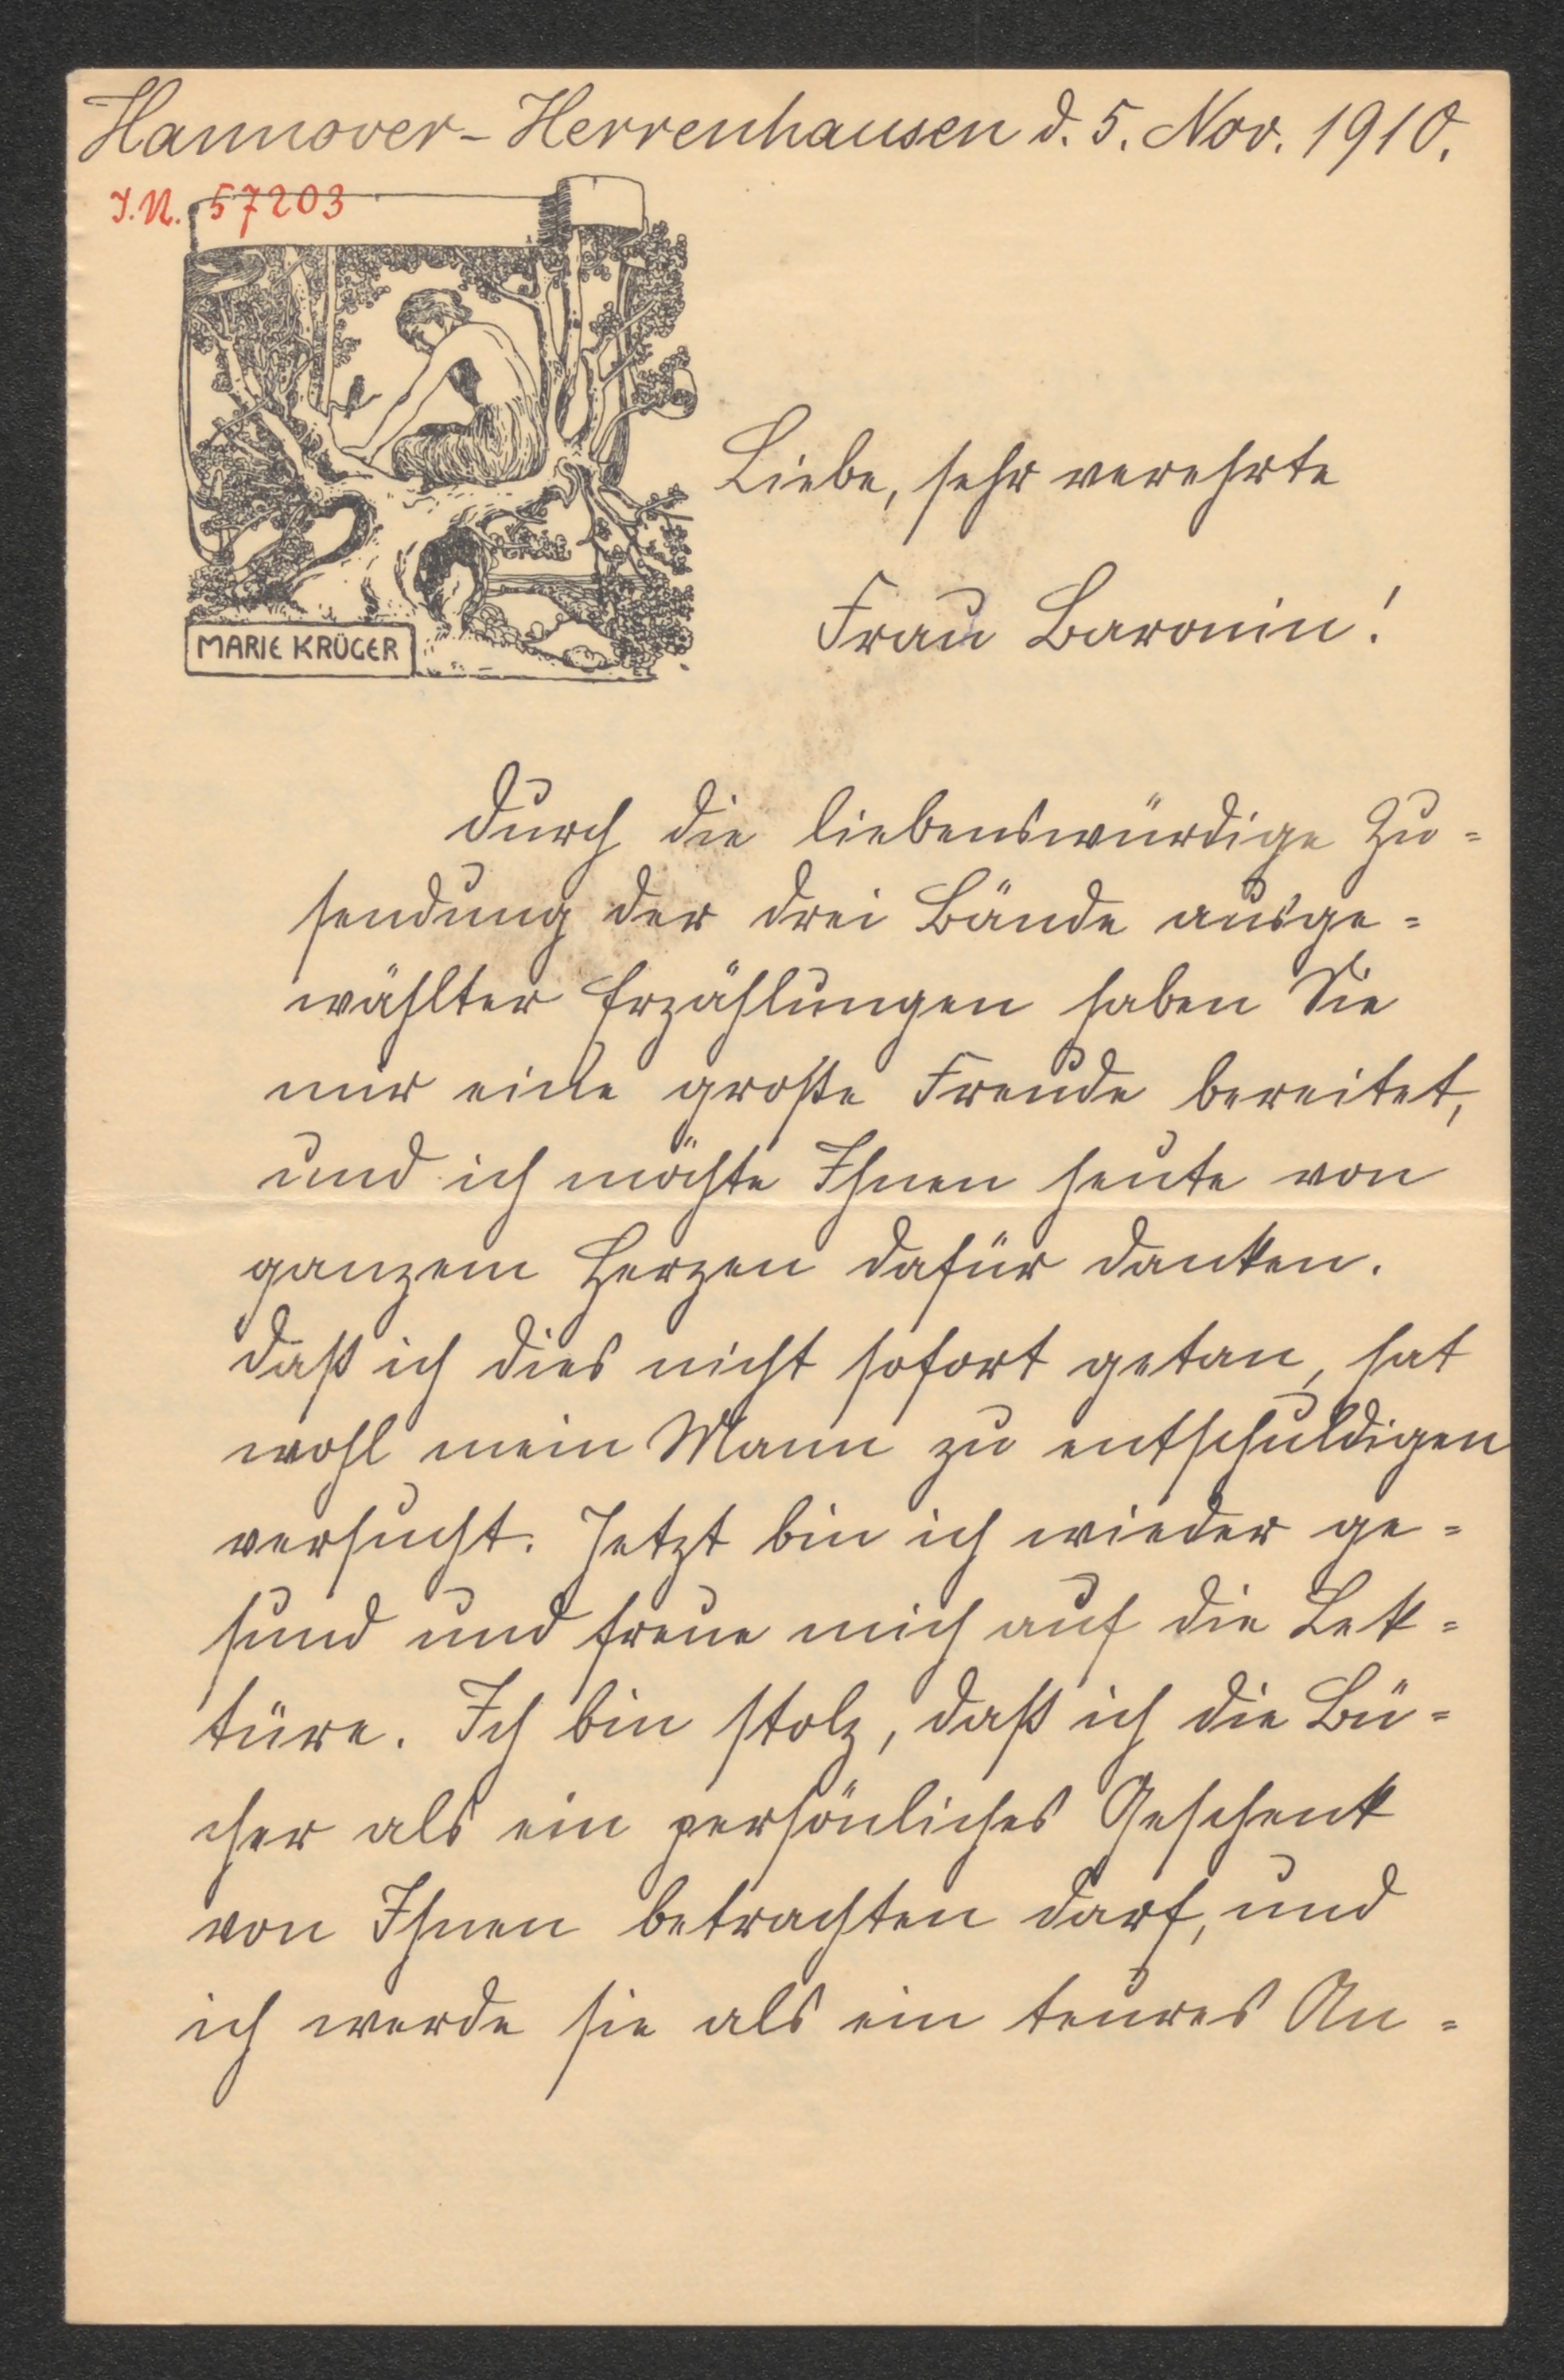 Hannover-Herrenhausen d. 5. Nov. 1910.
I.N. 57203
MARIE KRÜGER
Liebe, sehr verehrte
Frau Baronin!
Durch die liebenswürdige Zu=
sendung der drei Bände ausge=
wählter Erzählungen haben Sie
mir eine große Freude bereitet,
und ich möchte Ihnen heute von
ganzem Herzen dafür danken.
Daß ich dies nicht sofort getan, hat
wohl mein Mann zu entschuldigen
versucht. Jetzt bin ich wieder ge=
sund und freue mich auf die Lek=
türe. Ich bin stolz, daß ich die Bü=
cher als ein persönliches Geschenk
von Ihnen betrachten darf, und
ich werde sie als ein teures An=